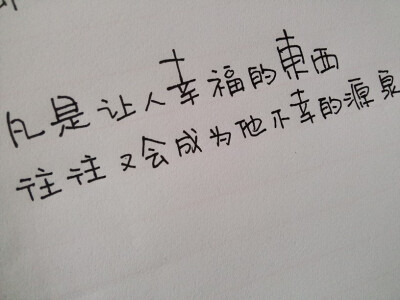 凡是让人幸福的東西
往往又会成为他不幸的源泉